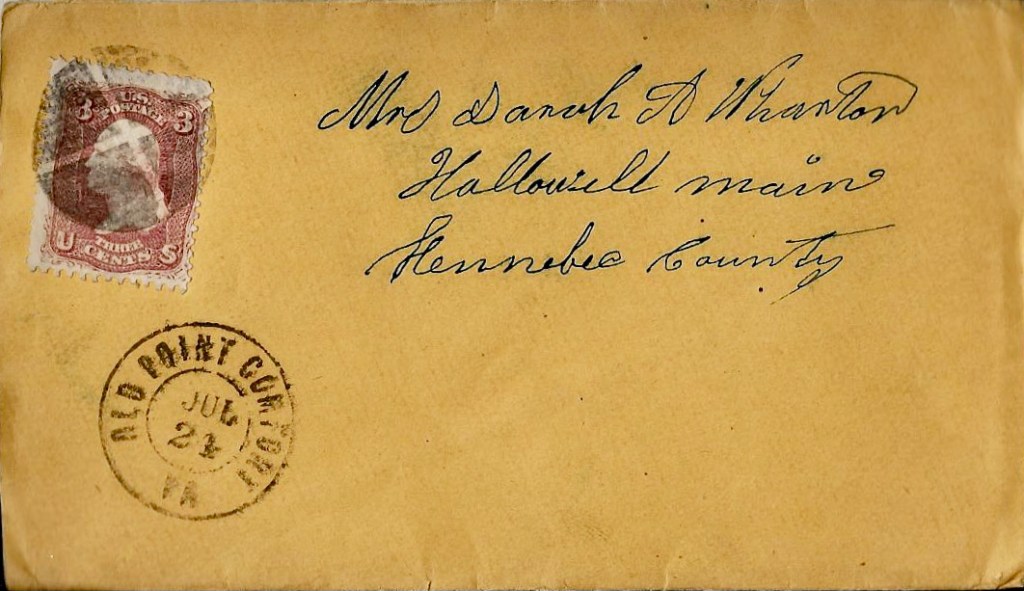 3 U.S. 3
POSTAGE
U CENTS S
Mrs Sarah A Wharton
Hallowell main
Kennebec County
OLD POINT COMFORT
JUL
21
VA